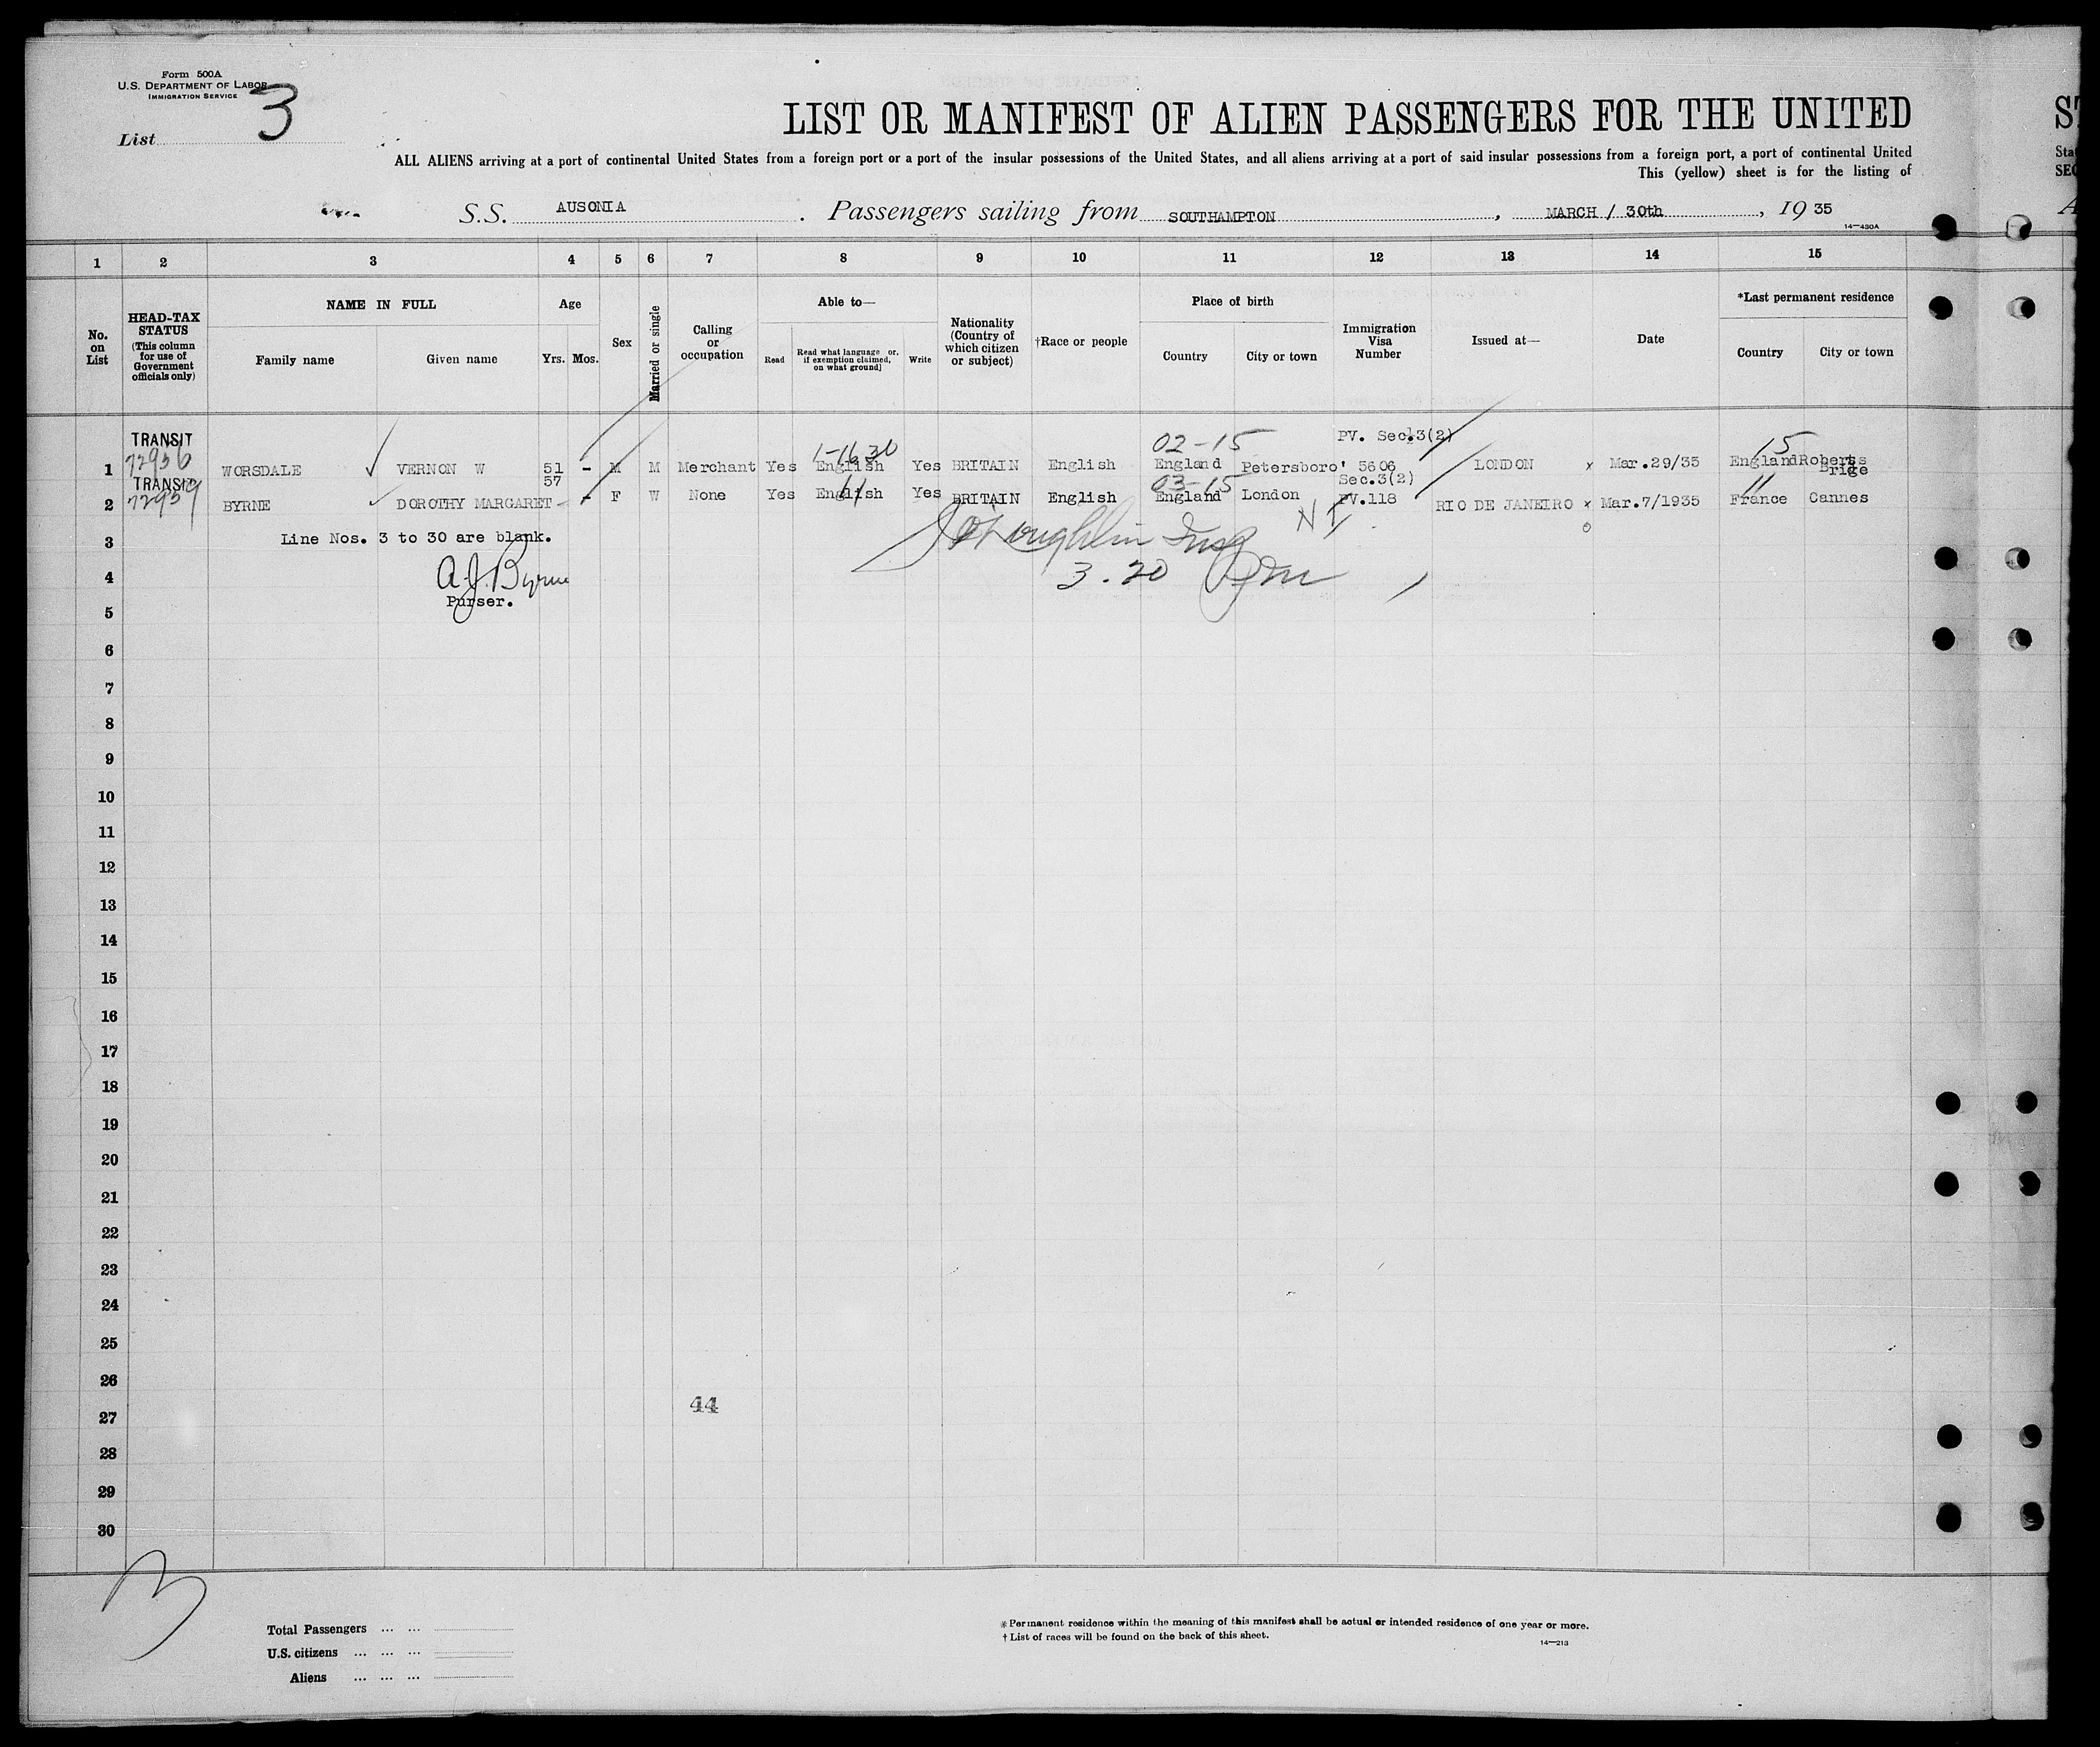 Form 500A
U.S. DEPARTMENT OF LABOR
IMMIGRATION SERVICE
List 3
LIST OR MANIFEST OF ALIEN PASSENGERS FOR THE UNITED
ALL ALIENS arriving at a port of continental United States from a foreign port or a port of the insular possessions of the United States, and all aliens arriving at a port of said insular possessions from a foreign port, a port of continental United
This (yellow) sheet is for the listing of
S.S. AUSONIA . Passengers sailing from SOUTHAMPTON , MARCH / 30th , 19 35
14—430A
1 2 3 4 5 6 7 8 9 10 11 12 13 14 15
No. on List
HEAD-TAX STATUS (This column for use of Government officials only)
NAME IN FULL
Family name Given name
Age
Yrs. Mos.
Sex
Married or single
Calling or occupation
Able to—
Read
Read what language or, if exemption claimed, on what ground]
Write
Nationality (Country of which citizen or subject)
†Race or people
Place of birth
Country City or town
Immigration Visa Number
Issued at—
Date
*Last permanent residence
Country City or town
TRANSIT 1-1630 02-15 PV. Sec.3(2) 15
1 WORSDALE VERNON W 51 - M M Merchant Yes English Yes BRITAIN English England Petersboro' 5606 LONDON x Mar.29/35 England Roberts Brige
TRANSIT 57 11 03-15 Sec.3(2) 11
2 72959 BYRNE DOROTHY MARGARET - F W None Yes English Yes BRITAIN English England London PV.118 RIO DE JANEIRO x Mar.7/1935 France Cannes
3 Line Nos. 3 to 30 are blank.
4 A.J. Byrne 3.20
Purser.
5
6
7
8
9
10
11
12
13
14
15
16
17
18
19
20
21
22
23
24
25
26
44
27
28
29
30
3
Total Passengers ... ...
U.S. citizens ... ... ...
Aliens ... ... ...
* Permanent residence within the meaning of this manifest shall be actual or intended residence of one year or more.
† List of races will be found on the back of this sheet.
14—213